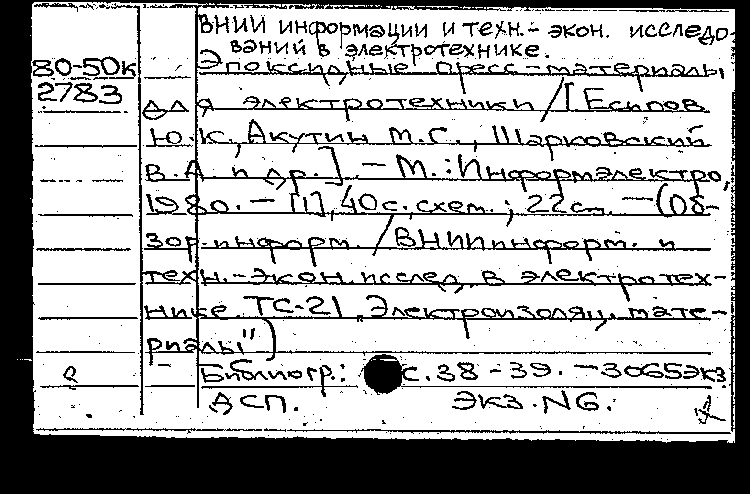 ВНИИ информации и техн.- экон. исследо-
ваний в электротехнике.
80-50к Эпоксидные пресс-материалы
2783 для электротехники / [ Есипов
Ю.К., Акутин М.С., Шарковский
В.А. и др. ] - М. : Информэлектро,
1980. - [1], 40с., схем. ; 22см. - (Об-
зор. информ. / ВНИИ информ. и
техн.-экон. исслед. в электротех-
нике. ТС-21 „Электроизоляц. мате-
риалы")
Библиогр.: с. 38-39. - 3065 экз.
ДСП. ЭКЗ. N6.